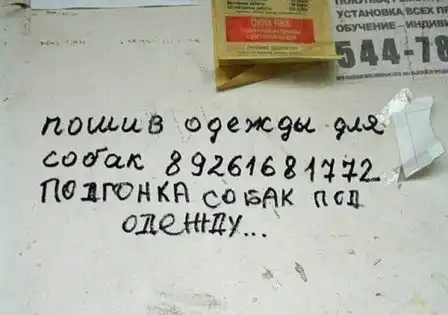 ОКНА ПВХ
УСТАНОВКА ВСЕХ ПР
ОБУЧЕНИЕ - ИНДИВИ
544-78
пошив одежды для
собак 89261681772
ПОДГОНКА СОБАК ПОД
ОДЕЖДУ...